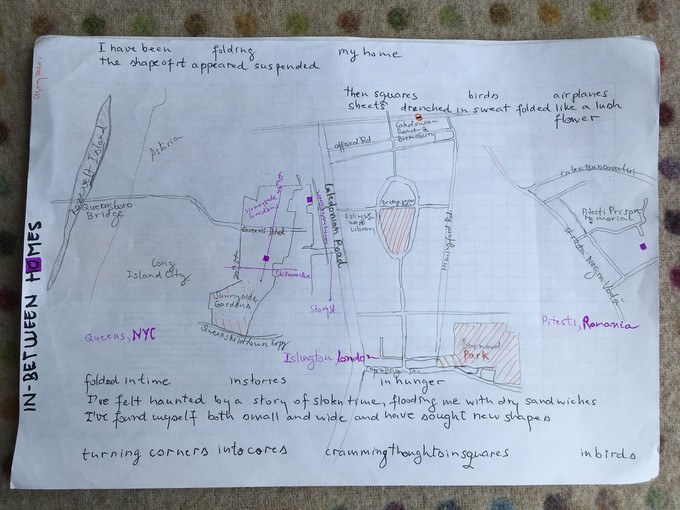 I have been folding my home
the shape of it appeared suspended
then squares birds airplanes
sheets drenched in sweat folded like a lush
flower
IN-BETWEEN HOMES
Roosevelt Island
Astoria
Queensboro
Bridge
Long
Island City
Sunnyside
Gardens
Queens Blvd
Queens Midtown Expy
Queens, NYC
Offord Rd
Caledonian
Road &
Barnsbury
Caledonian Road
Bridgeman
Islington
West
Library
Hemingford Rd
Story St
Barnard
Park
Copenhagen St
Islington, London
Calea Bascovului
Pitesti Prison
Memorial
Strada Negru Vodă
Pitesti, Romania
folded in time in stores in hunger
I've felt haunted by a story of stolen time, flooding me with dry sandwiches
I've found myself both small and wide and have sought new shapes
turning corners into cores cramming thoughts in squares in birds